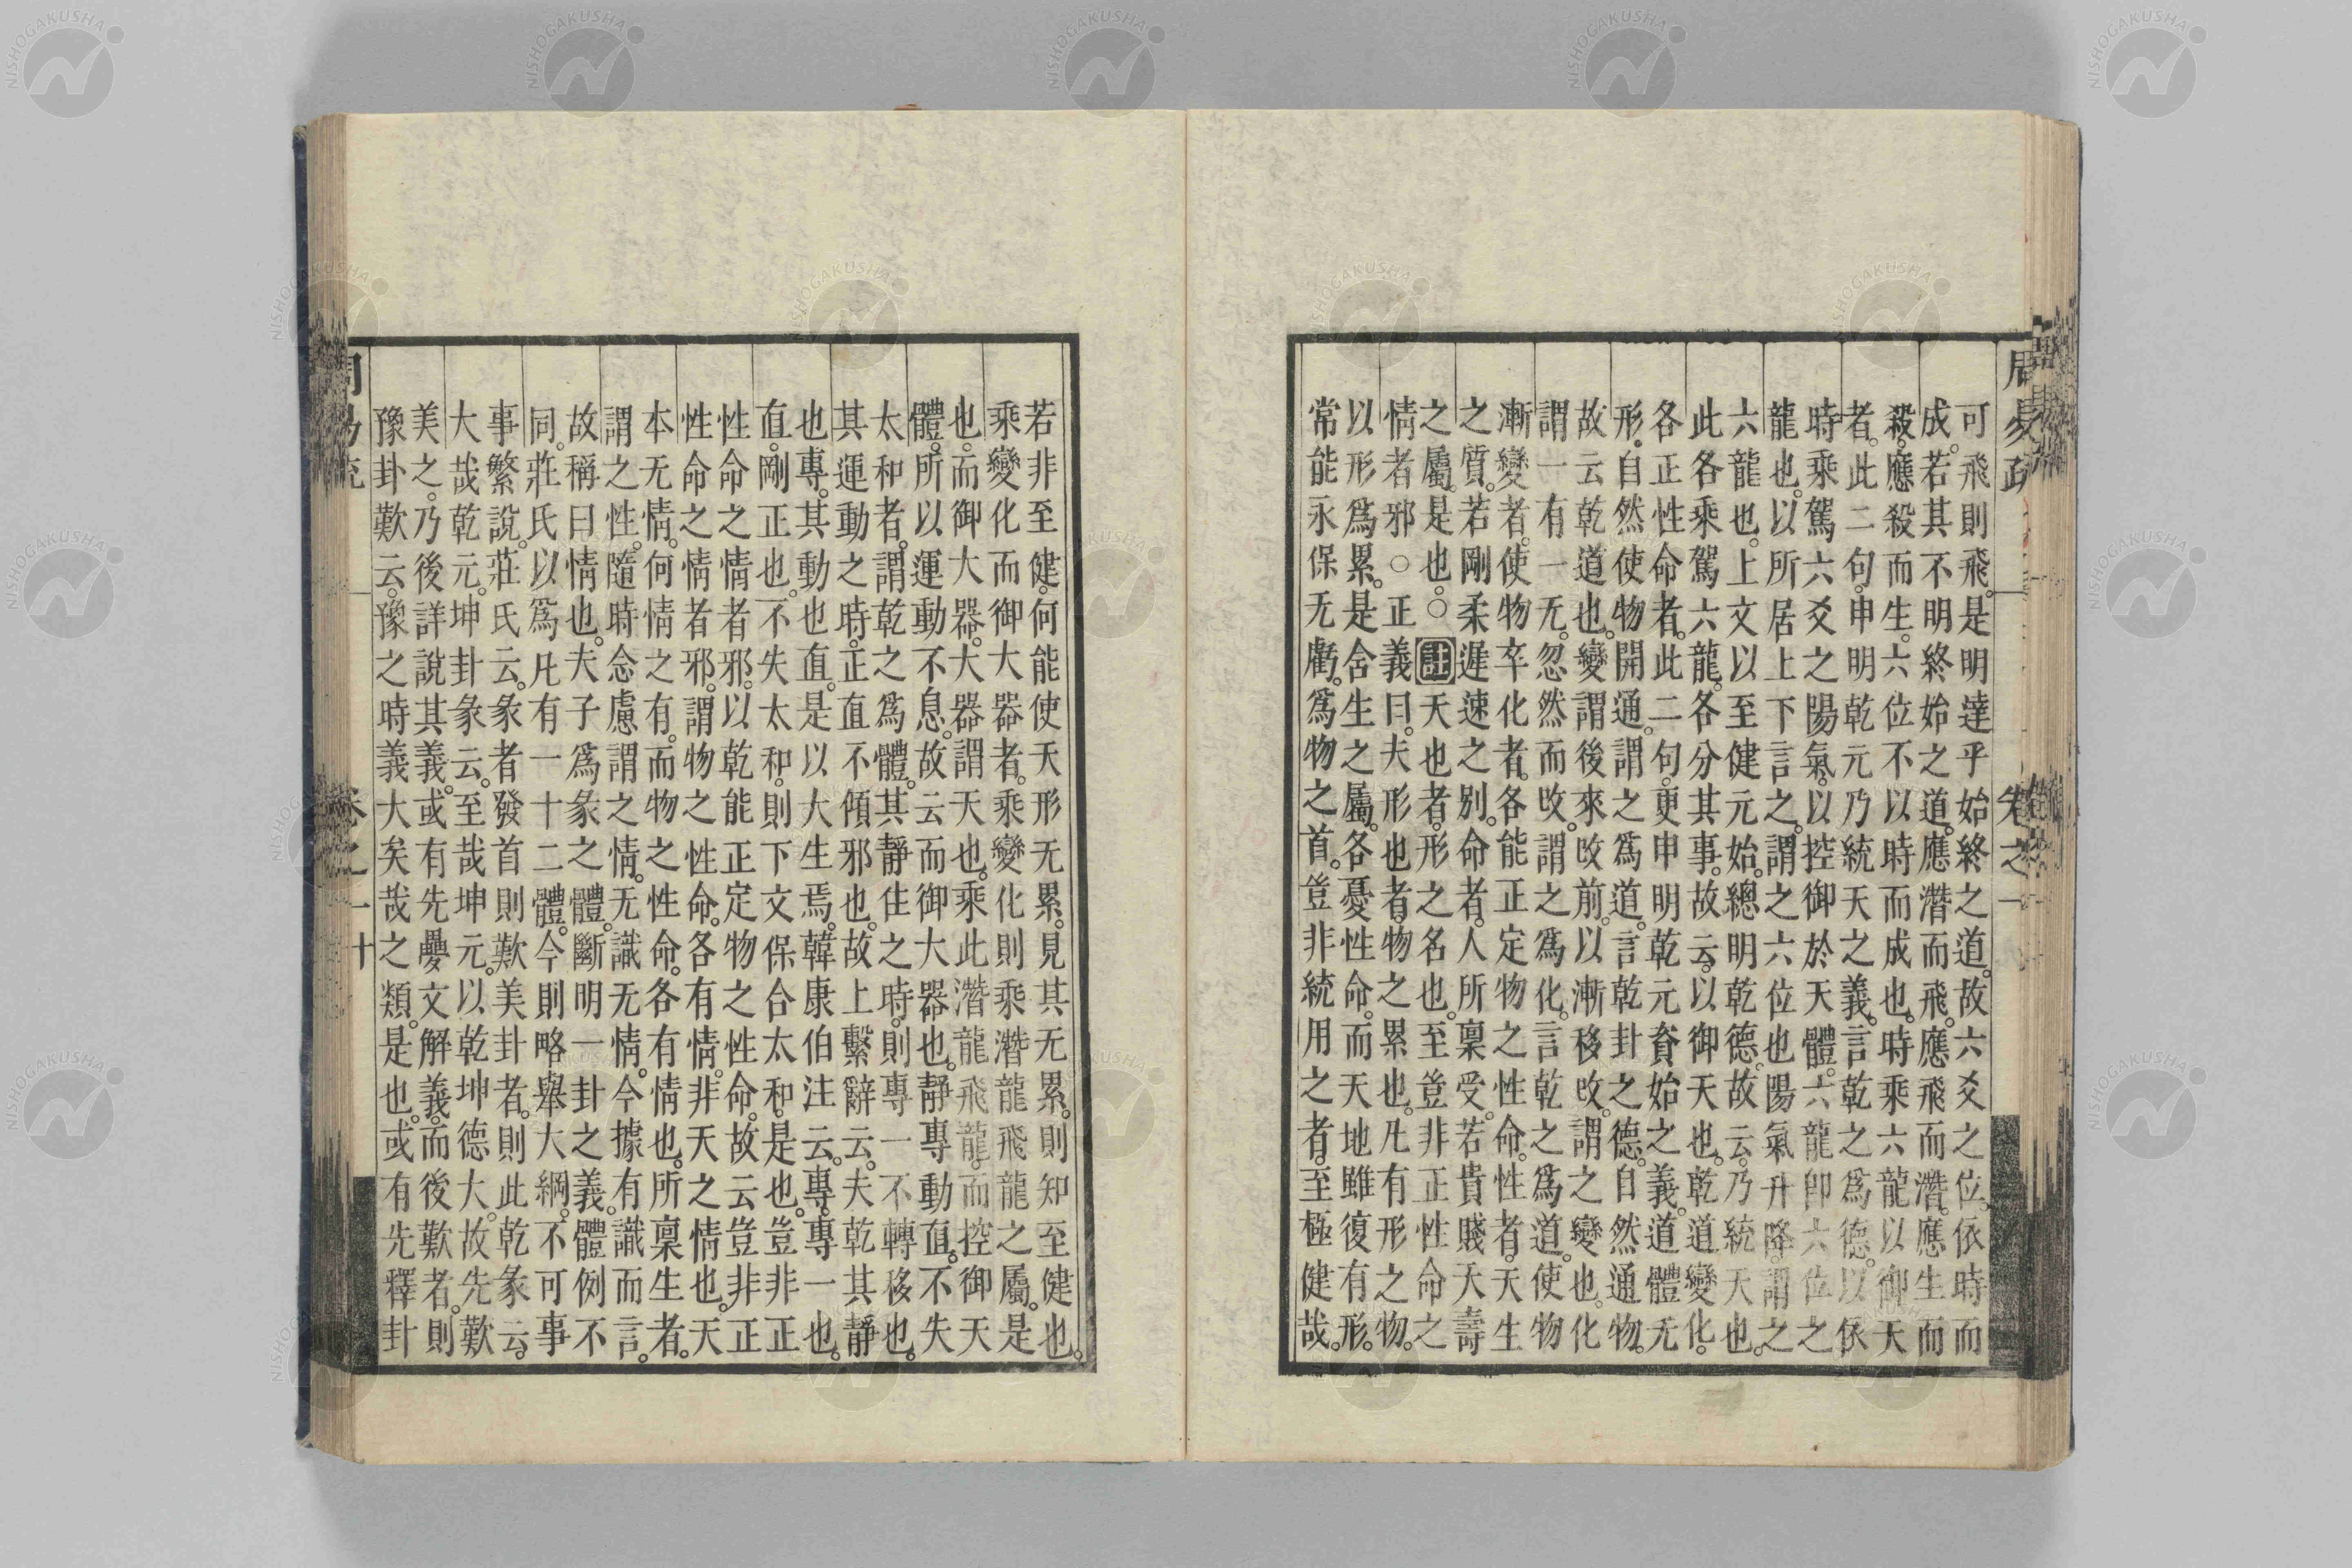 可飛則飛。是明達乎始終之道。故六爻之位。依時而
成。若其不明終始之道。應潛而飛。應飛而潛。應生而
殺。應殺而生。六位不以時而成也。時乘六龍以御天
者。此二句。申明乾元乃統天之義。言乾之爲德。以依
時乘駕六爻之陽氣。以控御於天體。六龍卽六位之
龍也。以所居上下言之。謂之六位也。陽氣升降。謂之
六龍也。上文以至健元始。總明乾德。故云乃統天也。
此各乘駕六龍。各分其事。故云以御天也。乾道變化。
各正性命者。此二句。更申明乾元資始之義。道體无
形。自然使物開通。謂之爲道。言乾卦之德。自然通物。
故云乾道也。變謂後來改前。以漸移改。謂之變也。化
謂一有一无。忽然而改。謂之爲化。言乾之爲道。使物
漸變者。使物卒化者。各能正定物之性命。性者。天生
之質。若剛柔遲速之別。命者。人所稟受。若貴賤夭壽
之屬。是也。○註天也者。形之名也。至豈非正性命之
情者邪○正義曰。夫形也者。物之累也。凡有形之物。
以形爲累。是含生之屬。各憂性命。而天地雖復有形。
常能永保无虧。爲物之首。豈非統用之者。至極健哉。
周易
卷之一
若非至健。何能使天形无累。見其无累。則知至健也。
乘變化而御大器者。乘變化則乘潛龍飛龍之屬。是
也。而御大器。大器謂天也。乘此潛龍飛龍。而控御天
體。所以運動不息。故云而御大器也。靜專動直。不失
太和者。謂乾之爲體。其靜住之時。則專一不轉移也。
其運動之時。正直不傾邪也。故上繫辭云。夫乾其靜
也專。其動也直。是以大生焉。韓康伯注云。專。專一也。
直。剛正也。不失太和。則下文保合太和。是也。豈非正
性命之情者邪。以乾能正定物之性命。故云豈非正
性命之情者邪。謂物之性命。各有情。非天之情也。天
本无情。何情之有。而物之性命。各有情也。所稟生者。
謂之性。隨時念慮謂之情。无識无情。今據有識而言。
故稱曰情也。夫子爲彖之體。斷明一卦之義。體例不
同。莊氏以爲凡有一十二體。今則略舉大綱。不可事
事繁說。莊氏云。彖者發首則歎美卦者。則此乾彖云。
大哉乾元。坤卦彖云。至哉坤元。以乾坤德大。故先歎
美之。乃後詳說其義。或有先疊文解義。而後歎者。則
豫卦歎云。豫之時義大矣哉之類。是也。或有先釋卦
卷之一 十